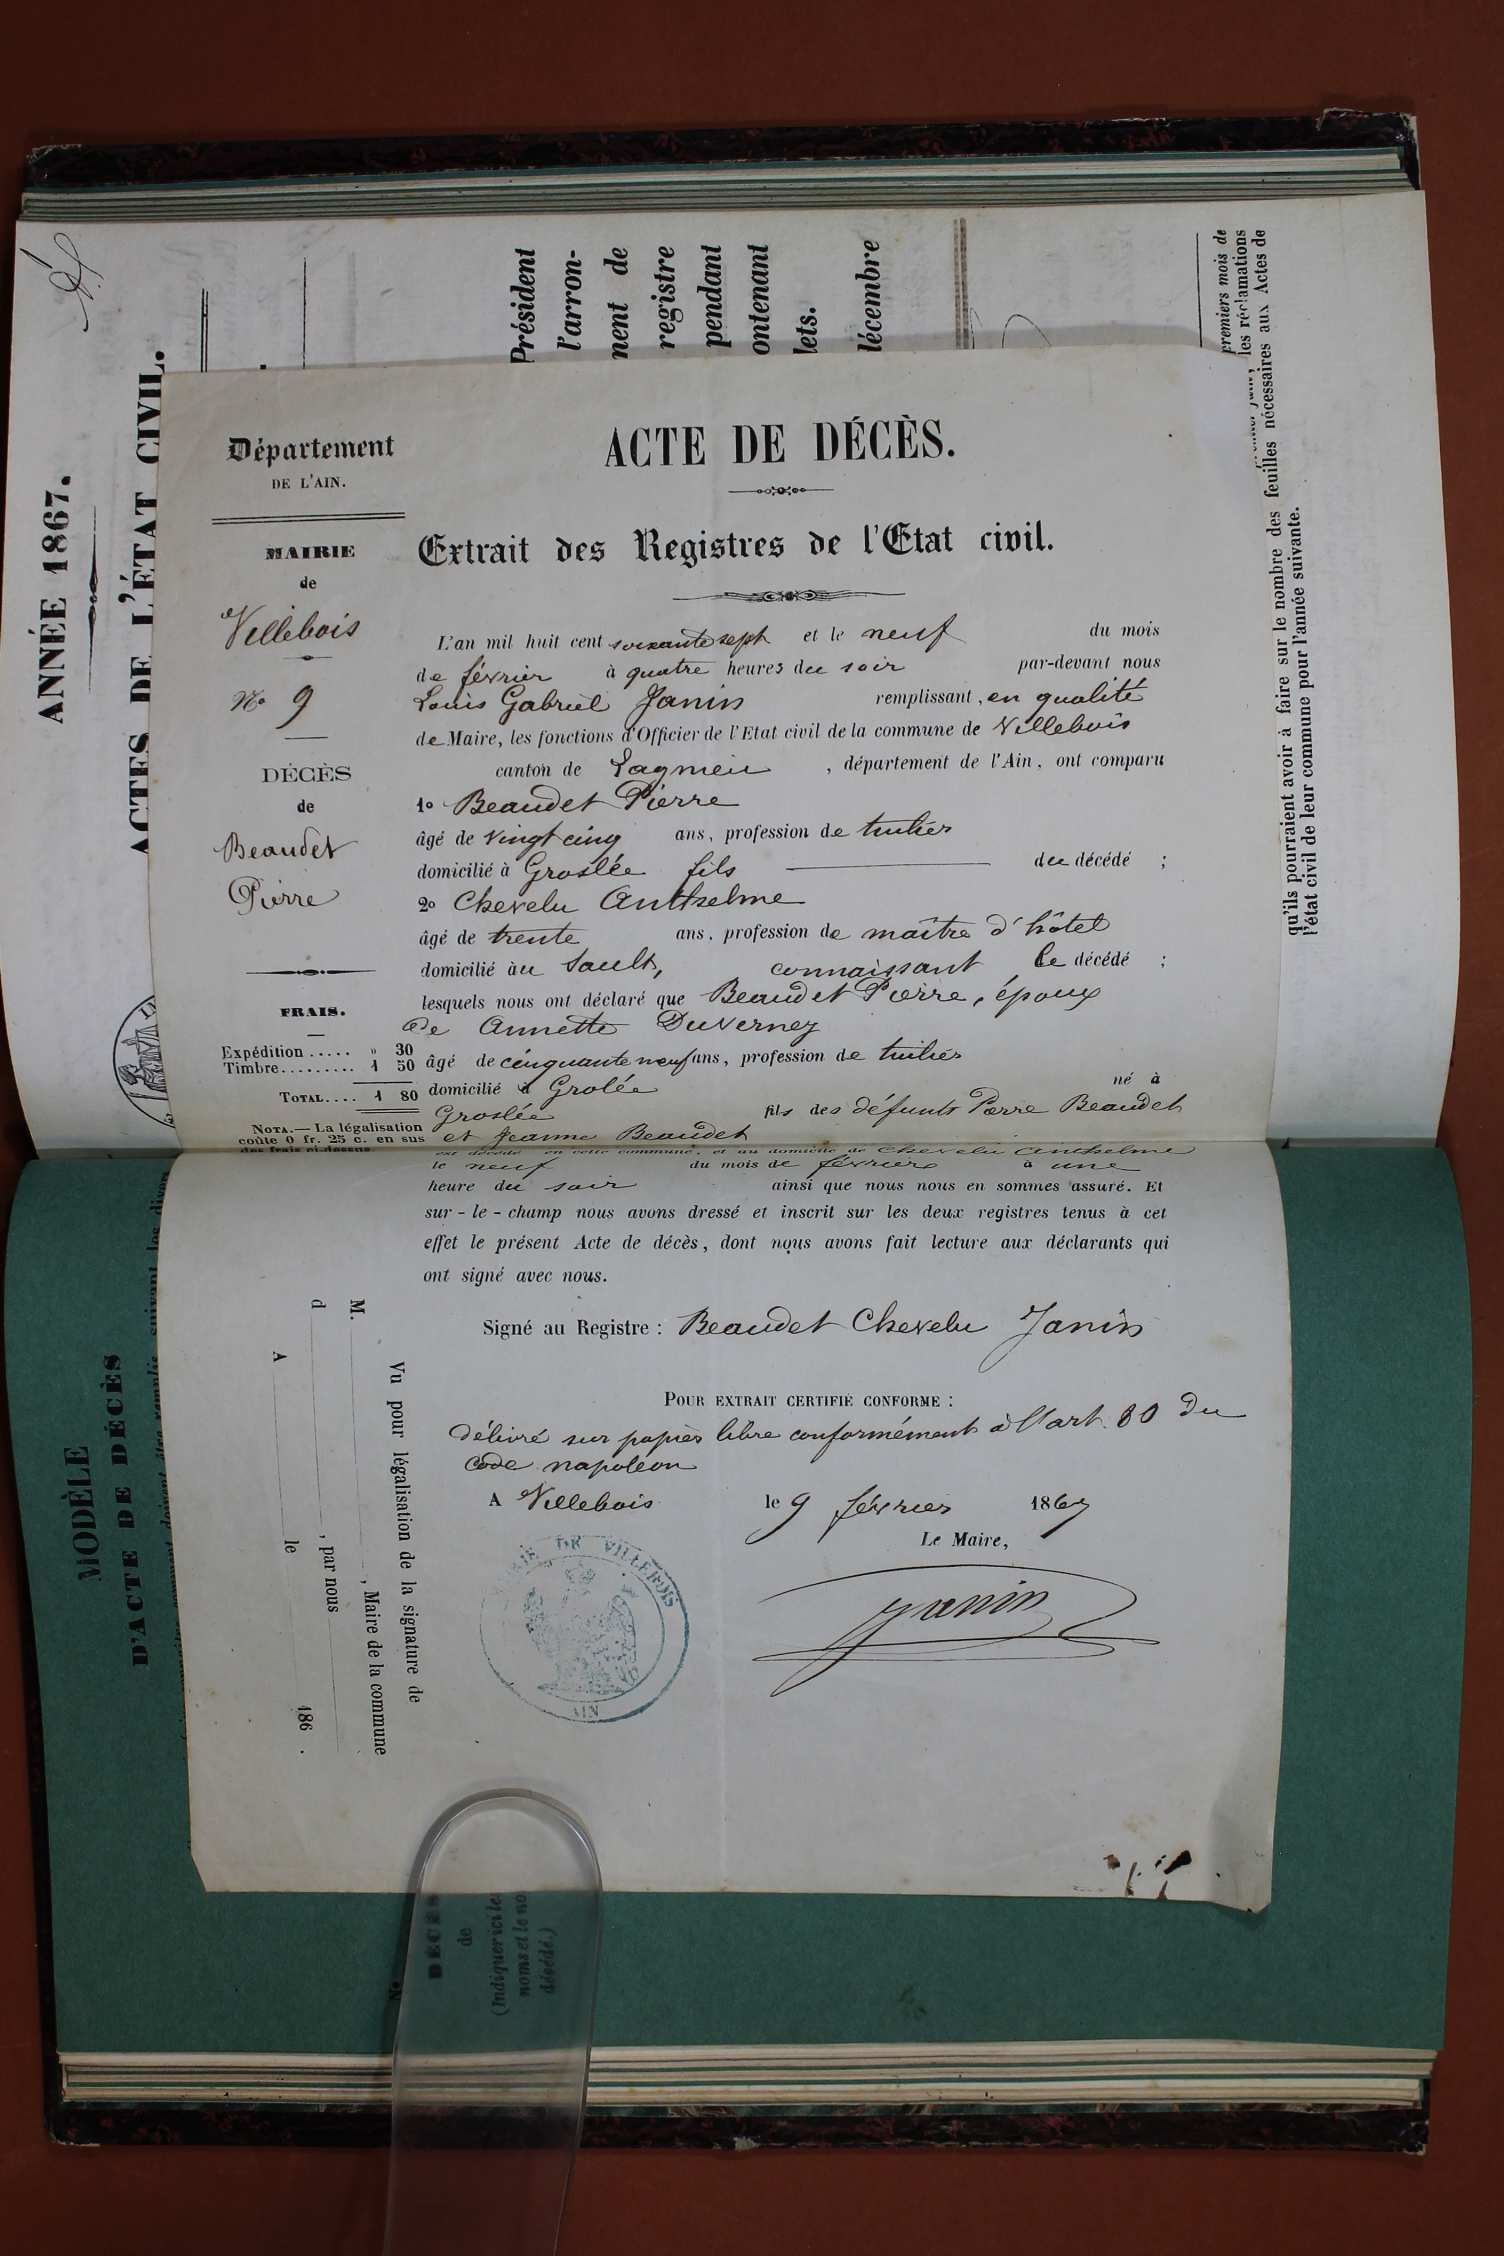 ANNÉE 1867.
ACTES DE L'ÉTAT CIVIL.
Président
l'arron-
nent de
registre
pendant
ontenant
lets.
décembre
premiers mois de
les réclamations
qu'ils pourraient avoir à faire sur le nombre des feuilles nécessaires aux Actes de
l'état civil de leur commune pour l'année suivante.
Département
DE L'AIN.
MAIRIE
de
Villebois
No 9
DÉCÈS
de
Beaudet
Pierre
FRAIS.
Expédition ..... » 30
Timbre......... 1 50
TOTAL.... 1 80
NOTA.— La légalisation
coûte 0 fr. 25 c. en sus
des frais ci-dessus
ACTE DE DÉCÈS.
Extrait des Registres de l'Etat civil.
L'an mil huit cent soixante sept et le neuf du mois
de février à quatre heures du soir par-devant nous
Louis Gabriel Janin remplissant, en qualité
de Maire, les fonctions d'Officier de l'Etat civil de la commune de Villebois
canton de Lagnieu, département de l'Ain, ont comparu
1o Beaudet Pierre
âgé de vingt cinq ans, profession de tuilier
domicilié à Groslée fils du décédé ;
2o Chevelu Anthelme
âgé de trente ans, profession de maître d'hôtel
domicilié au Sault, connaissant le décédé ;
lesquels nous ont déclaré que Beaudet Pierre, époux
de Annette Duverney
âgé de cinquante neuf ans, profession de tuilier
domicilié à Grolée né à
Groslée fils des défunts Pierre Beaudet
et Jeanne Beaudet
est décédé en cette commune, et au domicile de Chevelu Anthelme
le neuf du mois de février à une
heure du soir ainsi que nous nous en sommes assuré. Et
sur-le-champ nous avons dressé et inscrit sur les deux registres tenus à cet
effet le présent Acte de décès, dont nous avons fait lecture aux déclarants qui
ont signé avec nous.
Signé au Registre : Beaudet Chevelu Janin
POUR EXTRAIT CERTIFIÉ CONFORME :
délivré sur papier libre conformément à l'art. 80 du
code napoléon
A Villebois le 9 février 1867
Le Maire,
Janin
MAIRIE DE VILLEBOIS
AIN
Vu pour légalisation de la signature de
M. , Maire de la commune
d , par nous
A le 186 .
MODÈLE
D'ACTE DE DÉCÈS
No
DÉCÈS
de
(Indiquer ici le
noms et le no
décédé.)